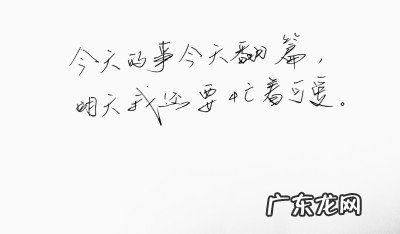 今天的事今天翻篇，
明天我还要忙着可爱。
广东龙网